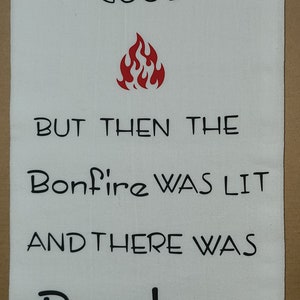 BUT THEN THE
Bonfire WAS LIT
AND THERE WAS